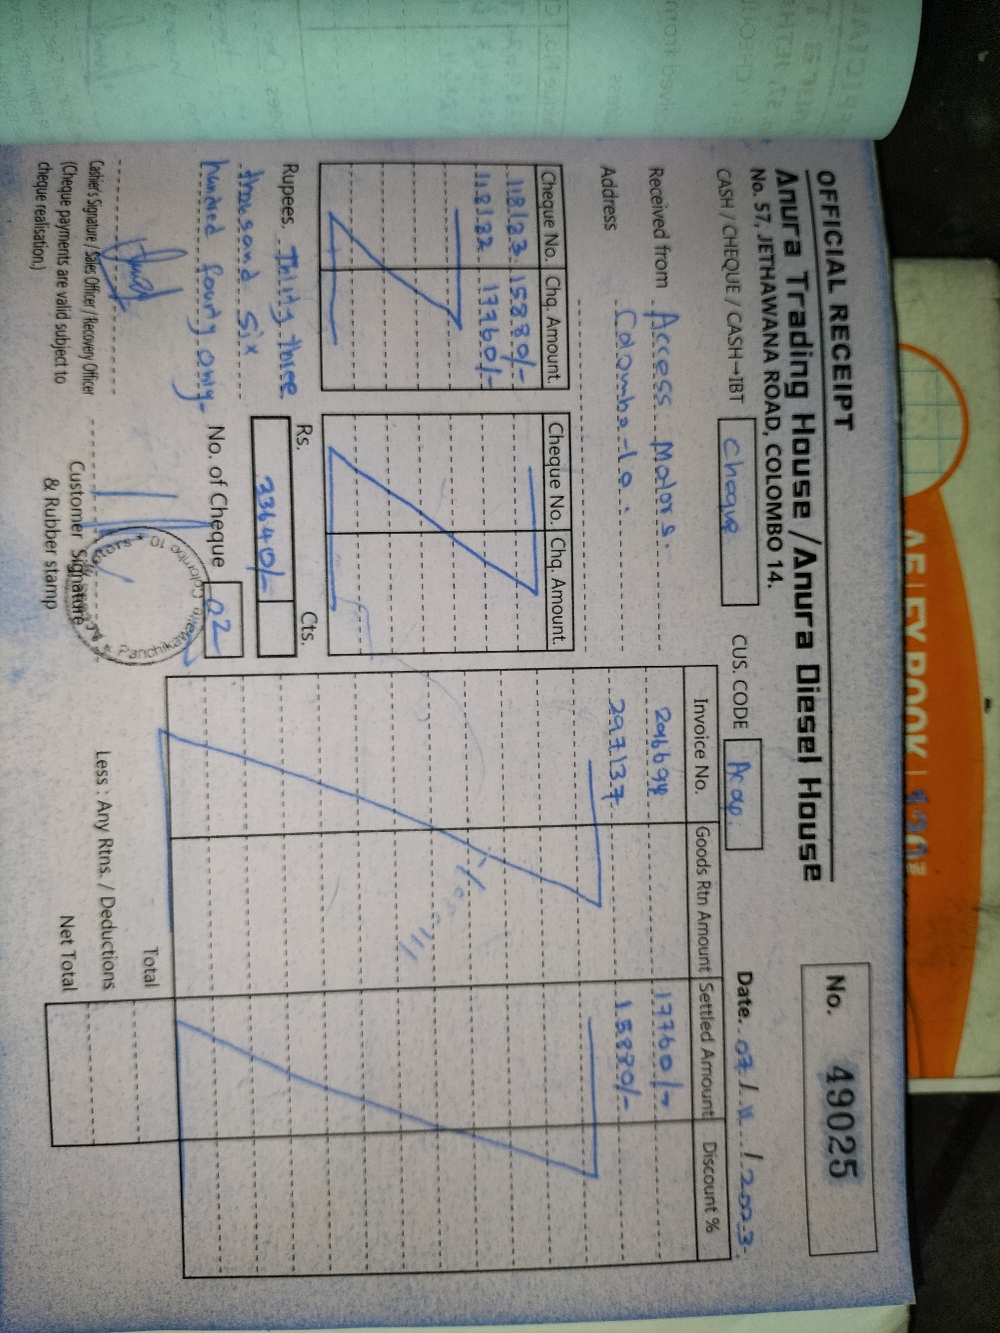 OFFICIAL RECEIPT
Anura Trading House / Anura Diesel House
No. 57, JETHAWANA ROAD, COLOMBO 14.
No. 49025
CASH / CHEQUE / CASH→IBT Cheque
CUS. CODE
Date. 07 / 11 / 2023
Received from Access Motors.
Address Colombo-10.
Cheque No. Chq. Amount.
118123 15880/-
118122 17760/-
Cheque No. Chq. Amount.
Rupees. Thirty three
thousand six
hundred fourty only.
Rs. Cts.
33640/-
No. of Cheque 02
Cashier's Signature / Sales Officer / Recovery Officer
(Cheque payments are valid subject to
cheque realisation.)
Customer Signature
& Rubber stamp
Colombo 10
Panchikawa
Invoice No. Goods Rtn Amount Settled Amount Discount %
296694 17760/-
297137 15880/-
Total
Less : Any Rtns. / Deductions
Net Total